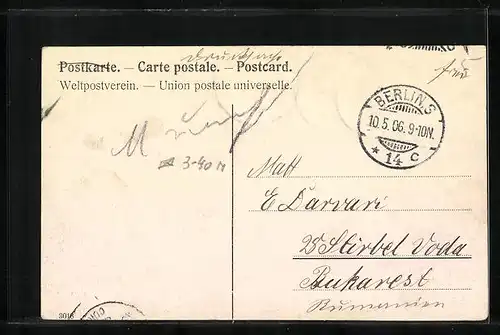 Drucksache
Postkarte. — Carte postale. — Postcard.
Weltpostverein. — Union postale universelle.
BERLIN S
10.5.06. 9-10N.
* 14 c
3-40 M
Matt
E Darvari
Stirbei Voda
Bukarest
Rumänien